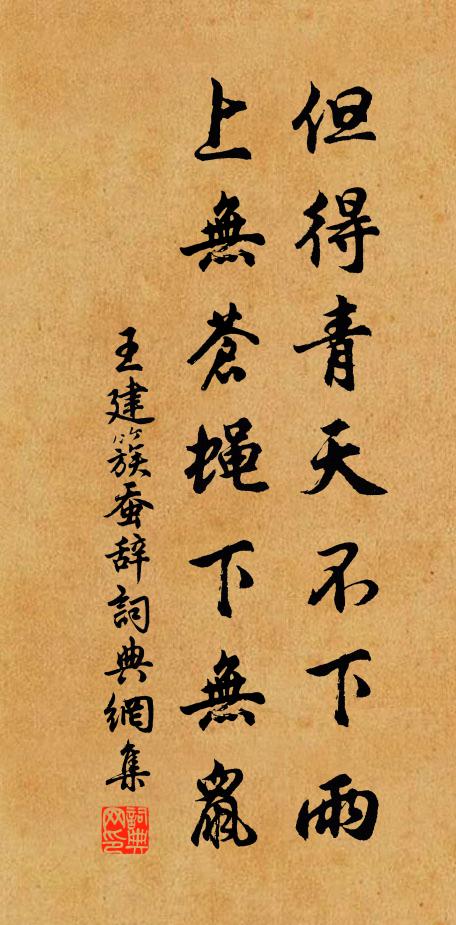 但得青天不下雨
上無蒼蝇下無鼠
王建簇蚕辞詞典網集
詞典网印